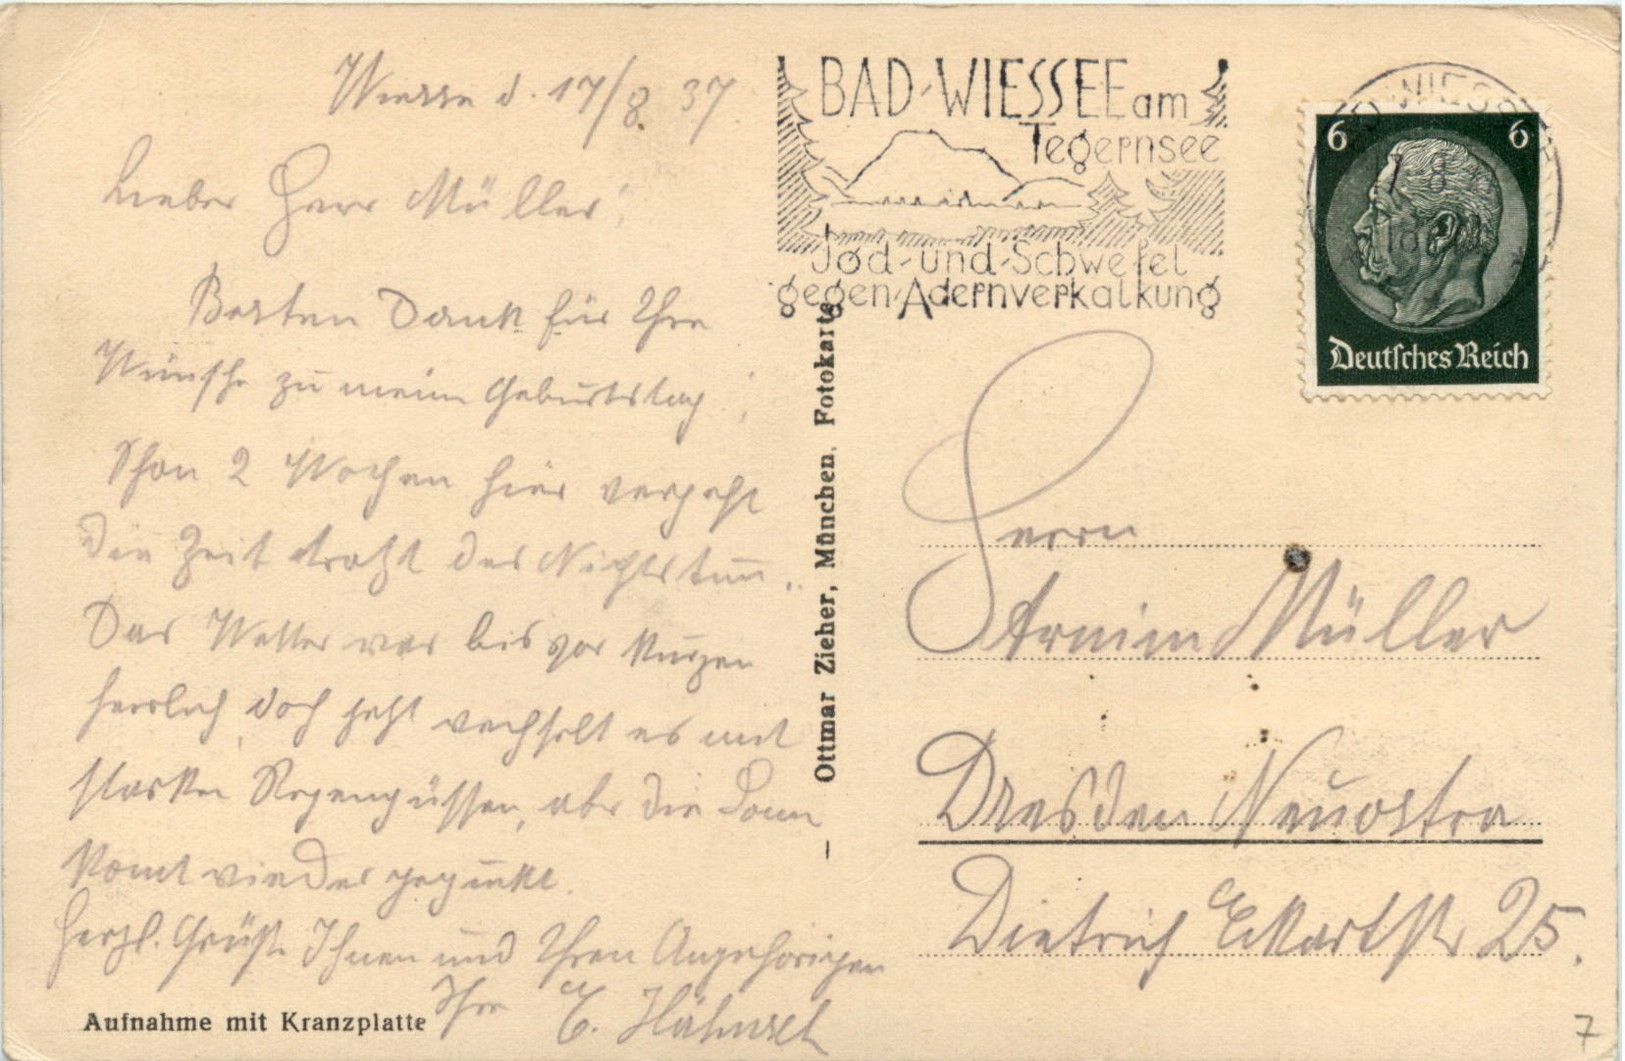 Wiesse d. 17/8. 37.
Lieber Herr Müller!
Besten Dank für Ihre
Wünsche zu meim Geburtstag!
Schon 2 Wochen hier vergeht
die Zeit trotz des Nichtstun..
Das Wetter war bis vor kurzen
herrlich, doch jetzt wechselt es mit
starken Regengüssen, aber die Sonn
komt wieder geguckt.
Herzl. Grüße Ihnen und Ihren Angehörigen
Ihr E.
Aufnahme mit Kranzplatte
Ottmar Zieher, München. Fotokarte
BAD-WIESSEE am
Tegernsee
Jod-und-Schwefel
gegen Adernverkalkung
WIESS
17 8
18
6 6
Deutsches Reich
Herrn
Armin Müller
Dresden Neuostra
Dietrich Eckartstr 25.
7